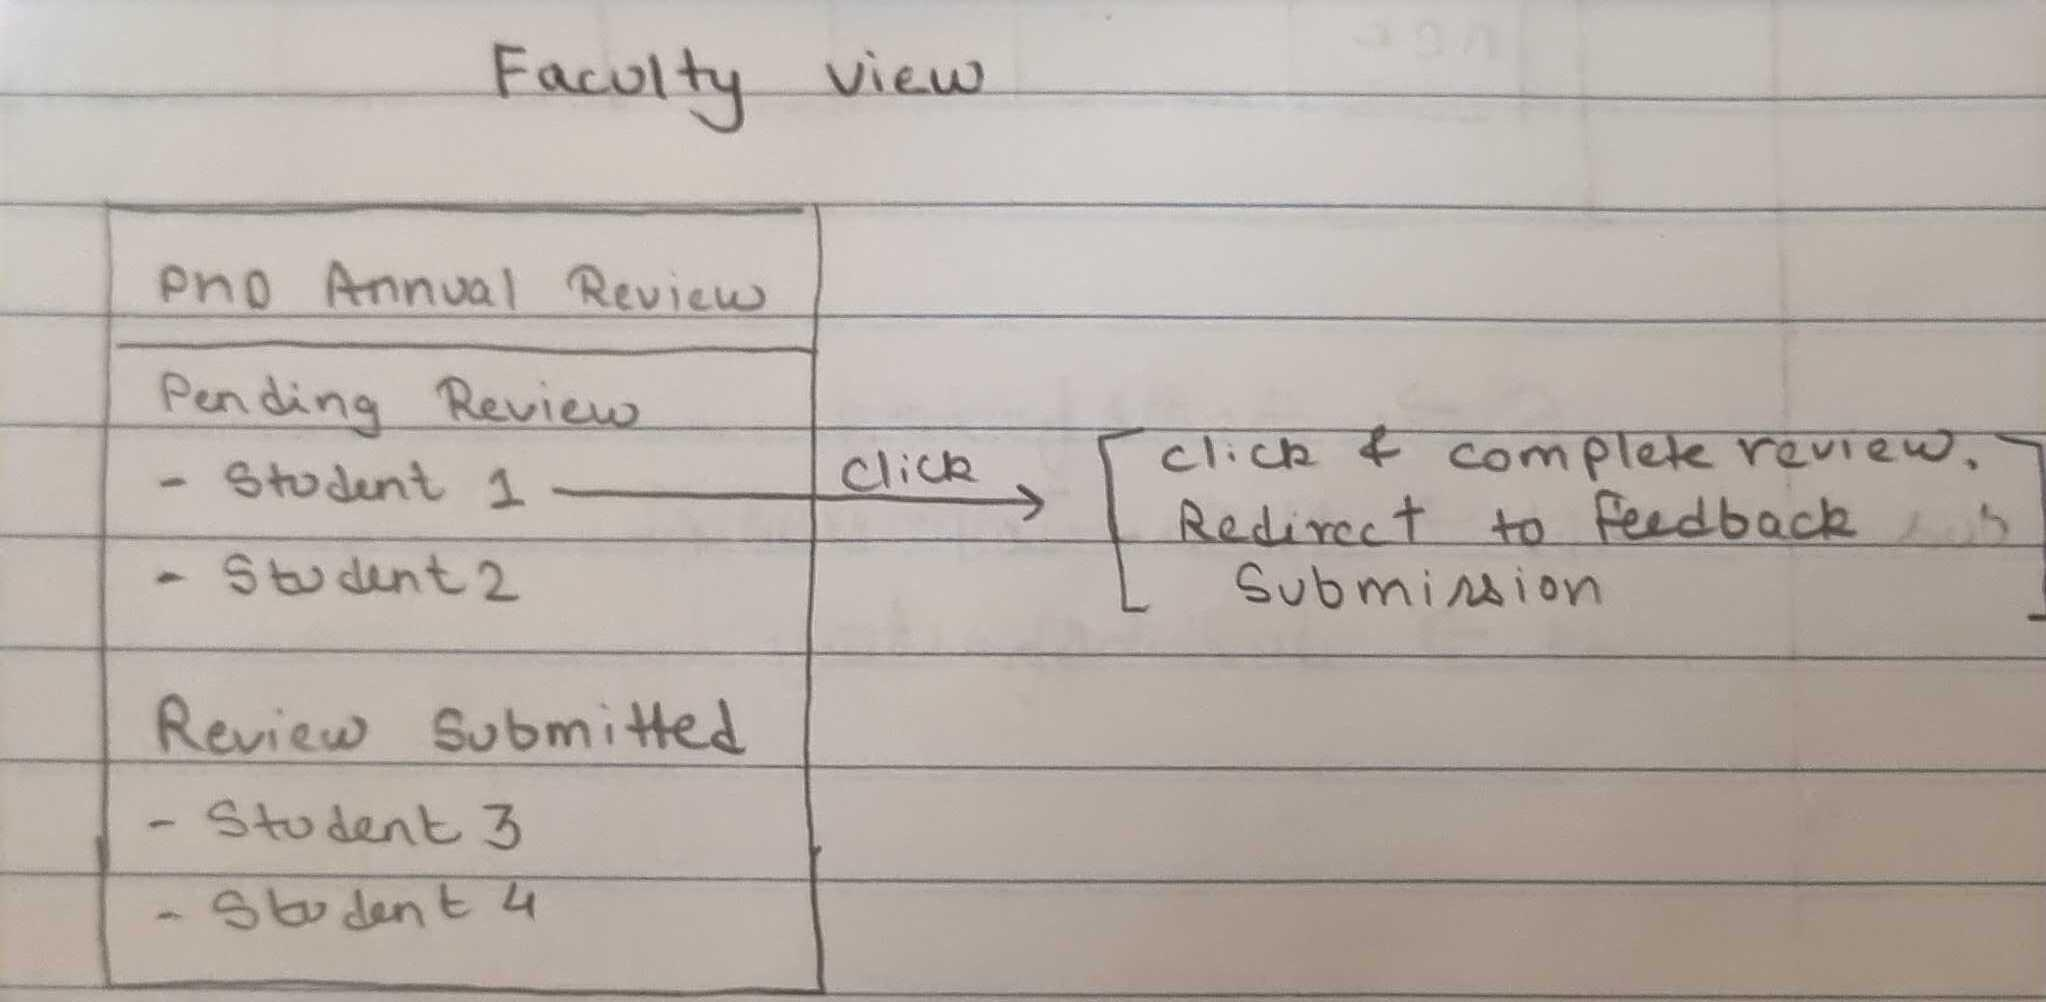 Faculty view
PhD Annual Review
Pending Review
- Student 1
click
click & complete review.
Redirect to feedback
Submission
- Student 2
Review Submitted
- Student 3
- Student 4